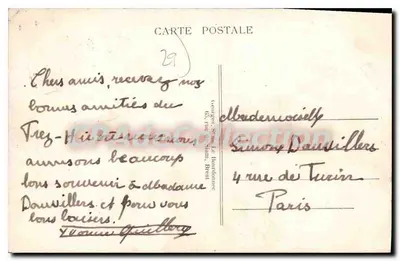 CARTE POSTALE
29
Chers amis, recevez nos
bonnes amitiés du
Trez-Hir où nous nous
amusons beaucoup
bons souvenir à Madame
Dauvillers et pour vous
bons baisers.
Yvonne Guillery
Mademoiselle
Simone Dauvillers
4 rue de Turin
Paris